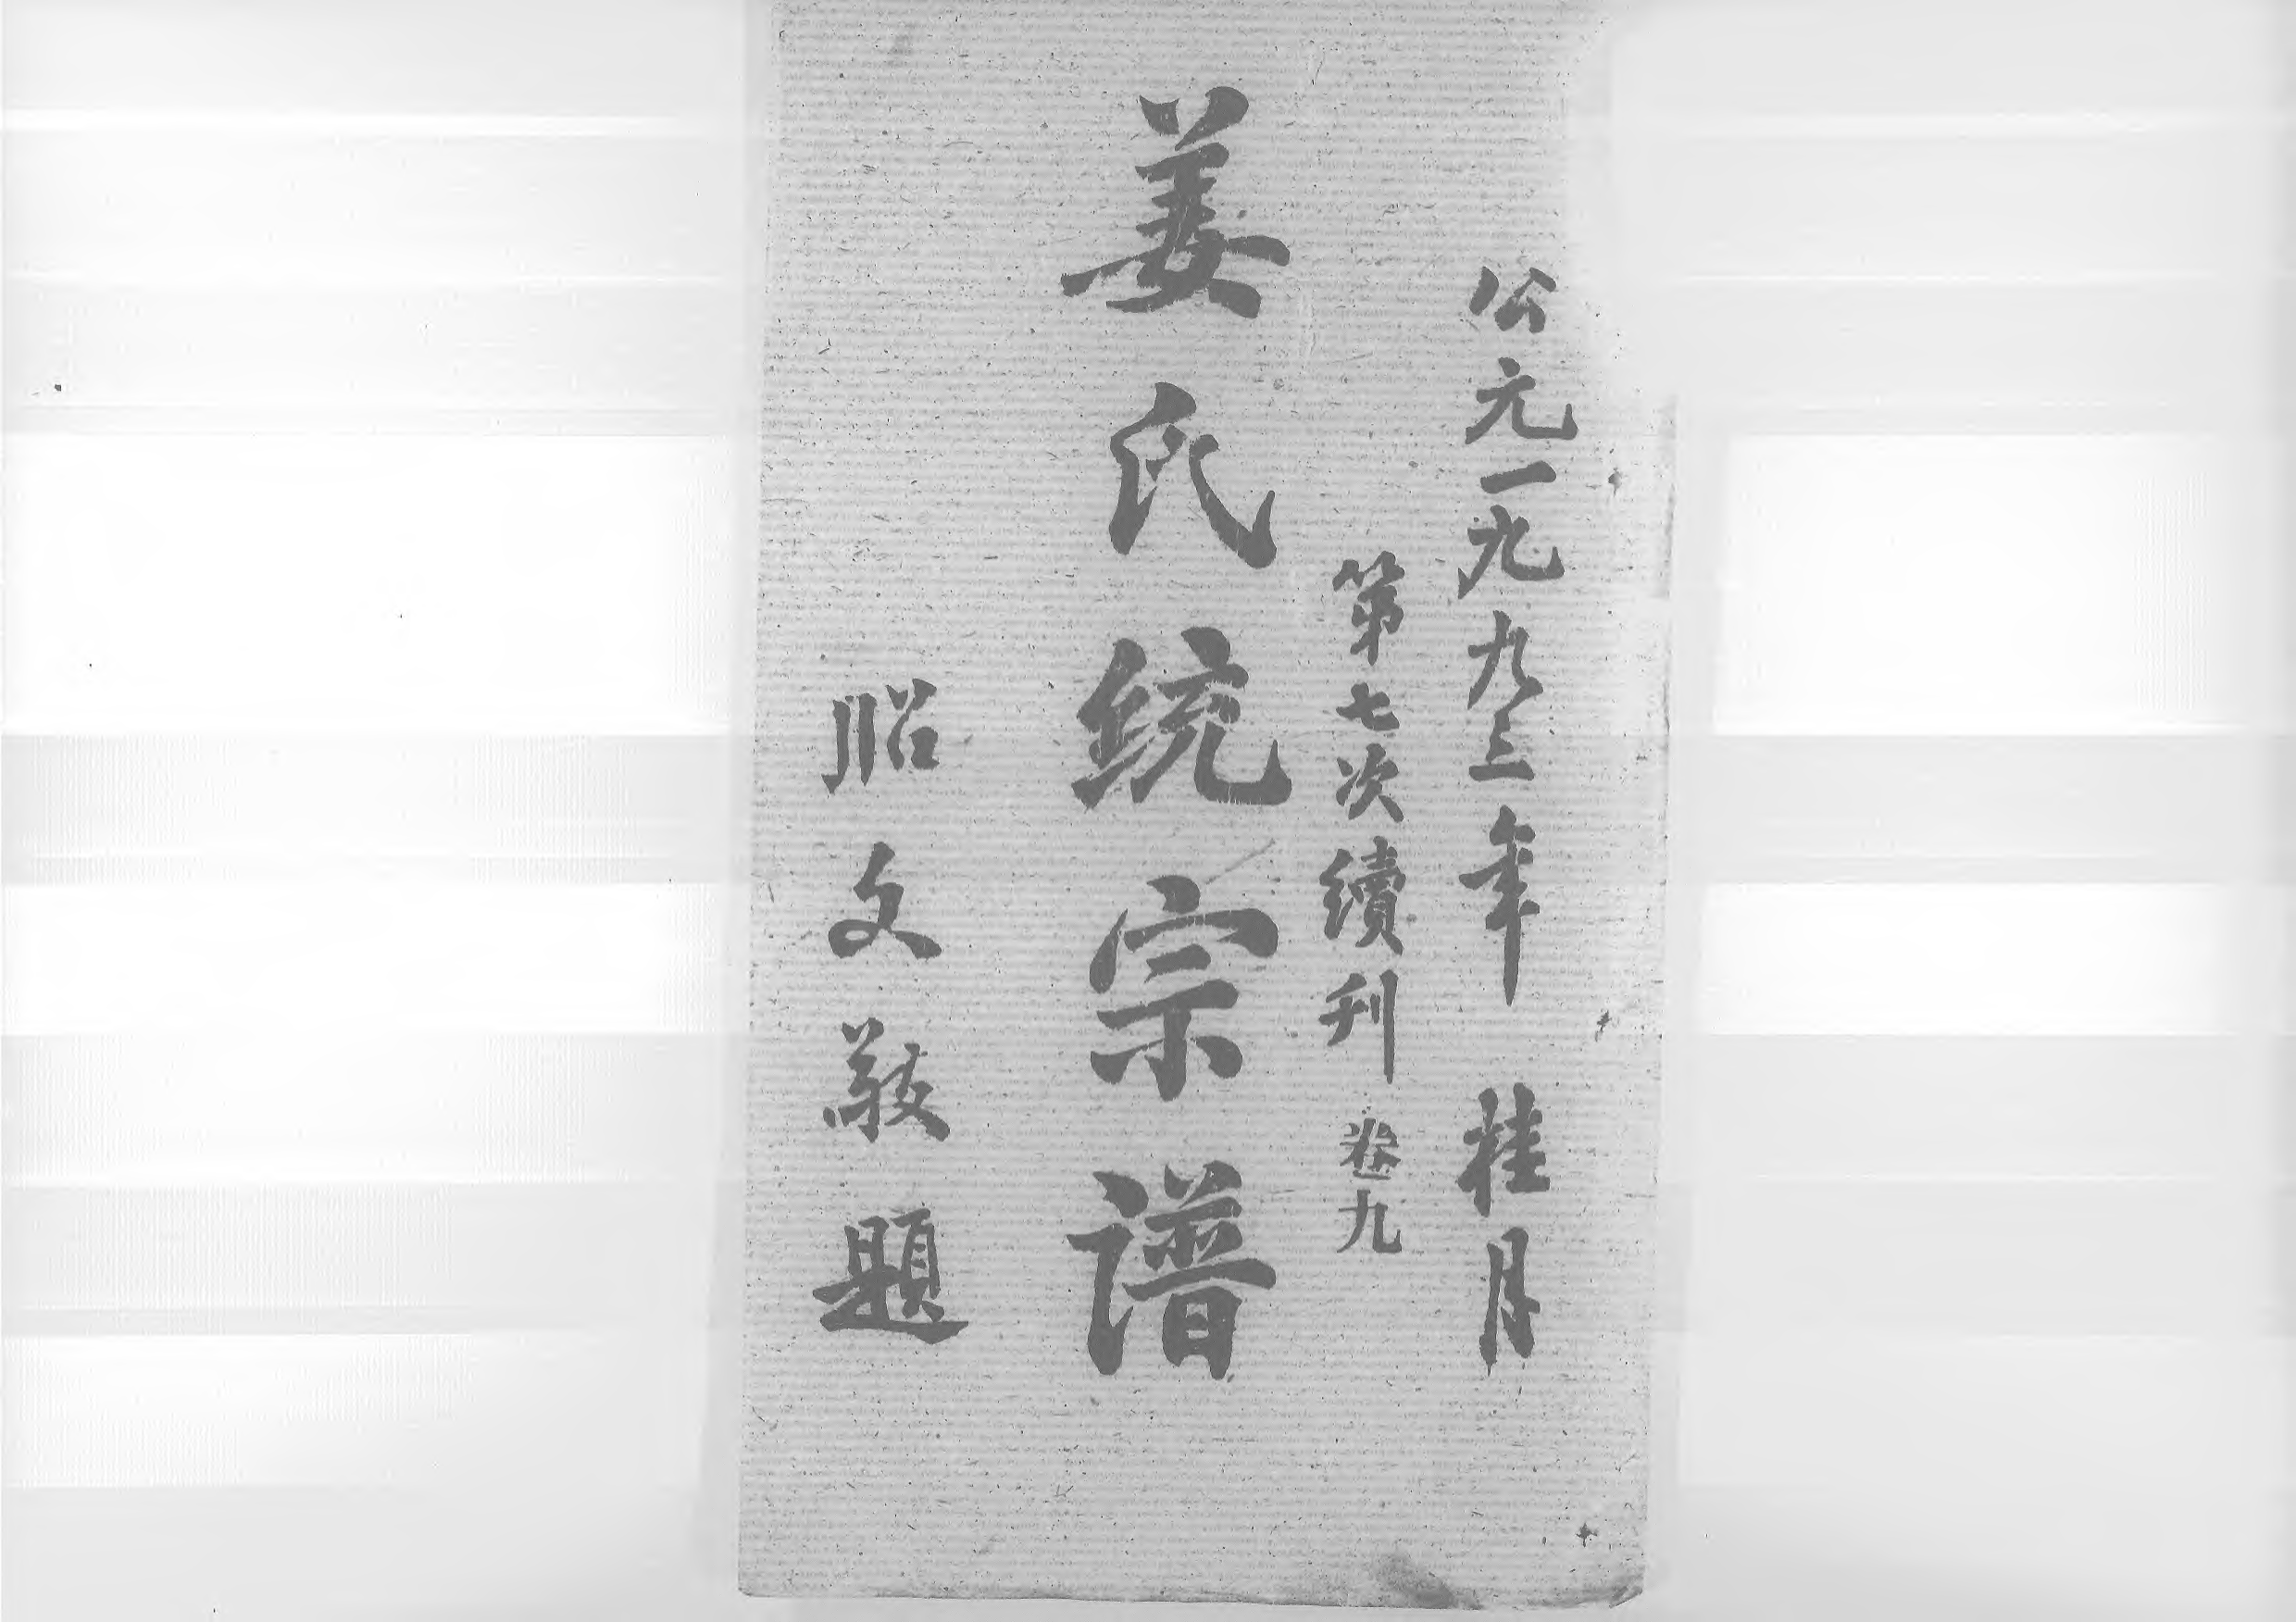 公元一九九三年 桂月
第七次續刊 卷九
姜氏統宗譜
昭文敬題